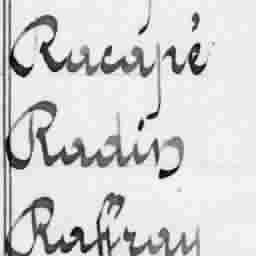 Racapé
Radin
Raffray